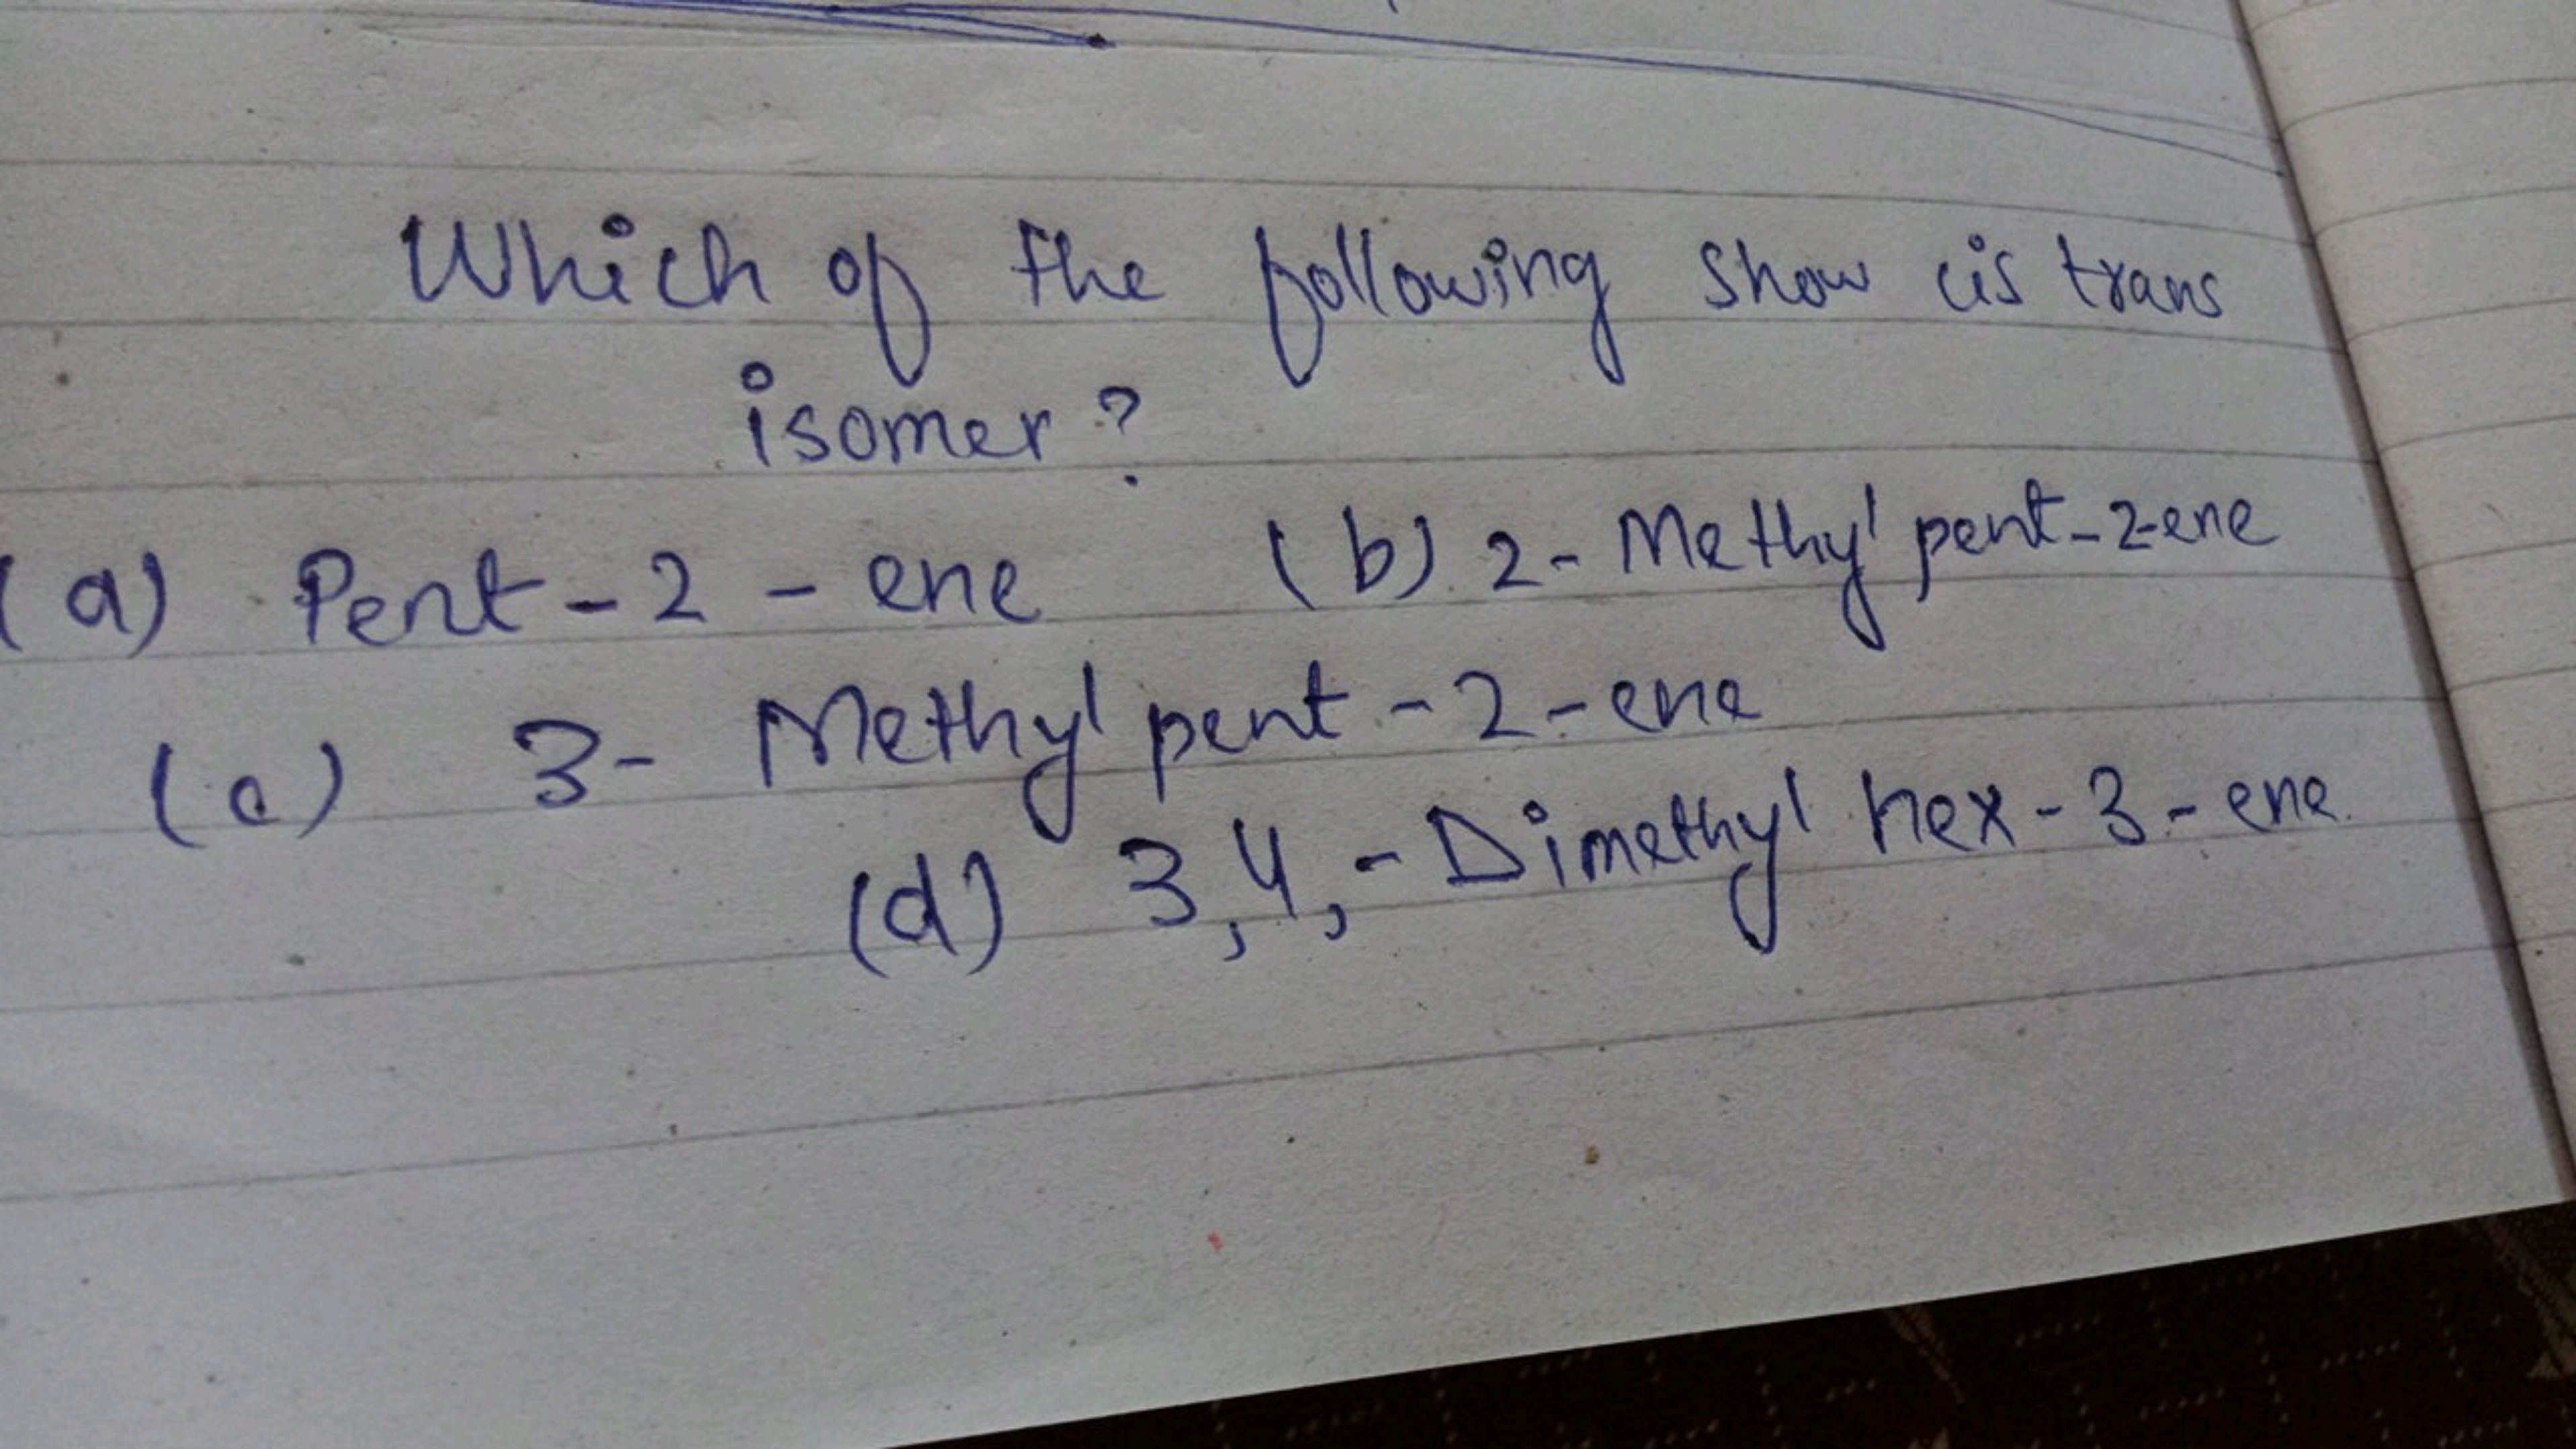 Which of the following show cis trans
isomer?
(a) Pent-2-ene (b) 2-Methyl pent-2-ene
(c) 3-Methyl pent-2-ene
(d) 3,4,-Dimethyl hex-3-ene.